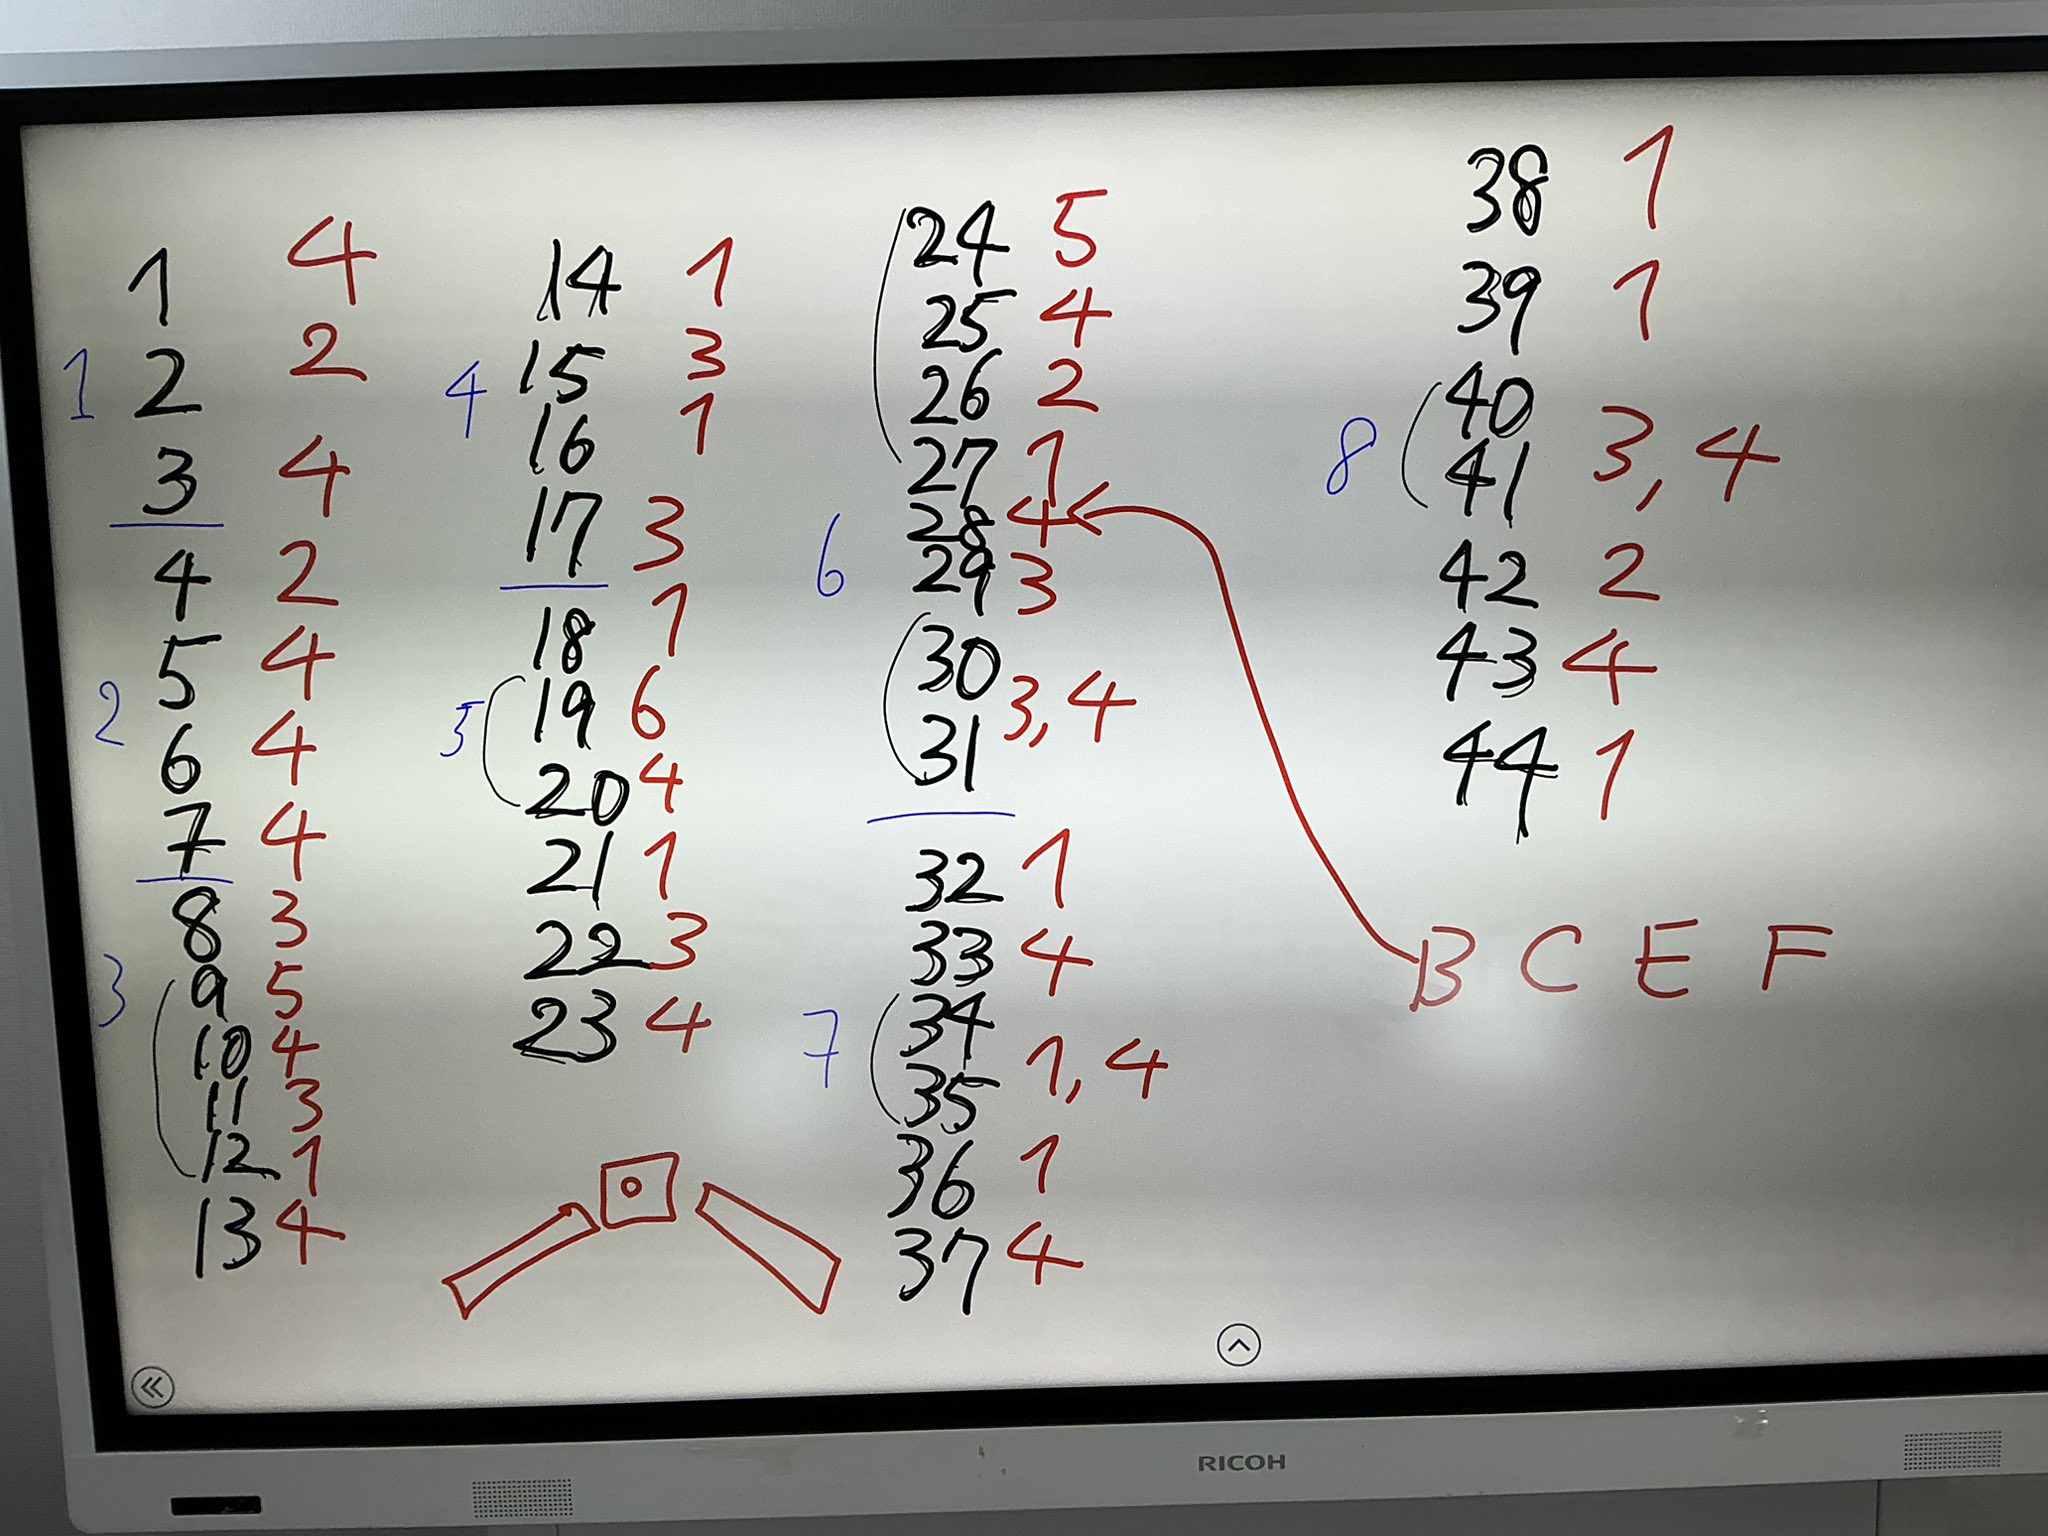 1 4
1 2 2
3 4
4 2
5 4
2 6 4
7 4
8 3
3 9 5
10 4
11 3
12 1
13 4
14 1
4 15 3
16 1
17 3
18 1
5 19 6
20 4
21 1
22 3
23 4
24 5
25 4
26 2
27 1
28 4
6 29 3
30
31 3, 4
32 1
33 4
7 34
35 1, 4
36 1
37 4
38 1
39 1
8 40
41 3, 4
42 2
43 4
44 1
B C E F
RICOH